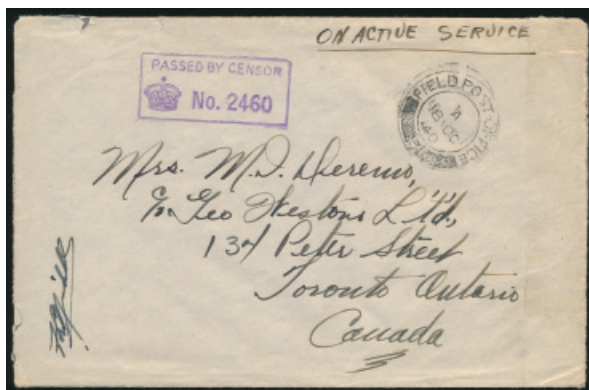 ON ACTIVE SERVICE
PASSED BY CENSOR
No. 2460
FIELD POST OFFICE
A
18 DE
40
Mrs. M.D. Deremo,
c/o Geo Westons Ltd,
134 Peter Street
Toronto Ontario
Canada